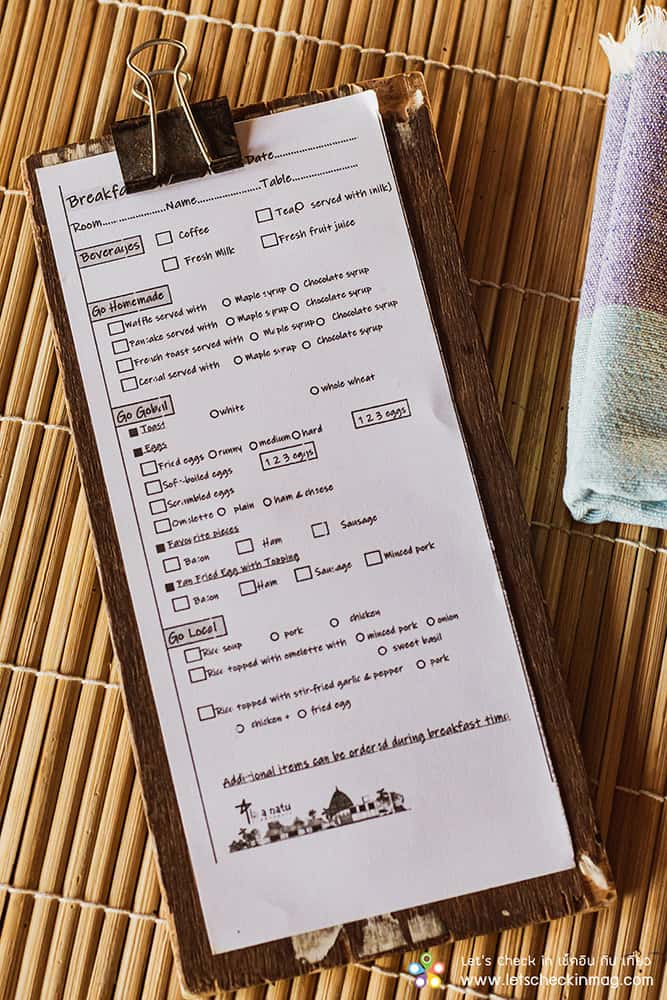 Breakfa Date....................
Room..............Name..................Table..................
Beverages Coffee Tea served with milk)
Fresh Milk Fresh fruit juice
Go Homemade
Waffle served with Maple syrup Chocolate syrup
Pancake served with Maple syrup Chocolate syrup
French toast served with Maple syrup Chocolate syrup
Cereal served with Maple syrup Chocolate syrup
Go Gobal
Toast white whole wheat
Eggs
Fried eggs runny medium hard 1 2 3 eggs
Soft-boiled eggs 1 2 3 eggs
Scrambled eggs
Omelette plain ham & cheese
Favourite pieces
Bacon Ham Sausage
Pan Fried Egg with Topping
Bacon Ham Sausage Minced pork
Go Local
Rice soup pork chicken
Rice topped with omelette with minced pork onion
sweet basil
Rice topped with stir-fried garlic & pepper pork
chicken + fried egg
Additional items can be ordered during breakfast time.
natu
Let's Check in เช็คอิน กิน เที่ยว
www.letscheckinmag.com